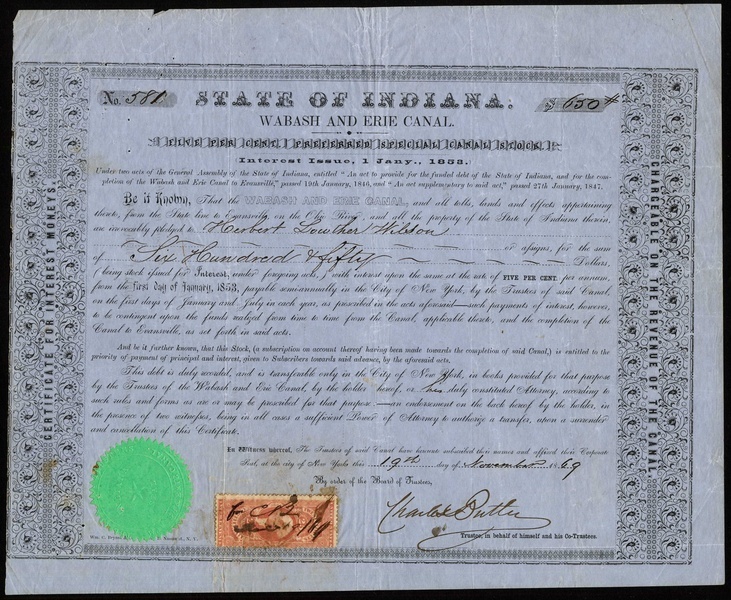 No. 581
STATE OF INDIANA.
$ 650
WABASH AND ERIE CANAL.
FIVE PER CENT. PREFERRED SPECIAL CANAL STOCK.
Interest Issue, 1 Jany., 1853.
Under two acts of the General Assembly of the State of Indiana, entitled "An act to provide for the funded debt of the State of Indiana, and for the com-
pletion of the Wabash and Erie Canal to Evansville," passed 19th January, 1846, and "An act supplementary to said act," passed 27th January, 1847.
Be it Known, That the WABASH AND ERIE CANAL, and all tolls, lands and effects appertaining
thereto, from the State line to Evansville, on the Ohio River, and all the property of the State of Indiana therein,
are irrevocably pledged to Herbert Lowther Wilson
or assigns, for the sum
of Six Hundred & fifty Dollars,
(being stock issued for Interest, under foregoing acts,) with interest upon the same at the rate of FIVE PER CENT. per annum,
from the first day of January, 1853, payable semi-annually in the City of New York, by the Trustees of said Canal,
on the first days of January and July in each year, as prescribed in the acts aforesaid—such payments of interest, however,
to be contingent upon the funds realized from time to time from the Canal, applicable thereto, and the completion of the
Canal to Evansville, as set forth in said acts.
And be it further known, that this Stock, (a subscription on account thereof having been made towards the completion of said Canal,) is entitled to the
priority of payment of principal and interest, given to Subscribers towards said advance, by the aforesaid acts.
This debt is duly recorded, and is transferable only in the City of New York, in books provided for that purpose
by the Trustees of the Wabash and Erie Canal, by the holder hereof, or his duly constituted Attorney, according to
such rules and forms as are or may be prescribed for that purpose.—an endorsement on the back hereof by the holder, in
the presence of two witnesses, being in all cases a sufficient Power of Attorney to authorize a transfer, upon a surrender
and cancellation of this Certificate.
In Witness whereof, The Trustees of said Canal have hereunto subscribed their names and affixed their Corporate
Seal, at the city of New York this 19th day of November 1869
By order of the Board of Trustees,
Charles Butler
Trustee, in behalf of himself and his Co-Trustees.
CERTIFICATE FOR INTEREST MONEYS.
CHARGEABLE ON THE REVENUE OF THE CANAL.